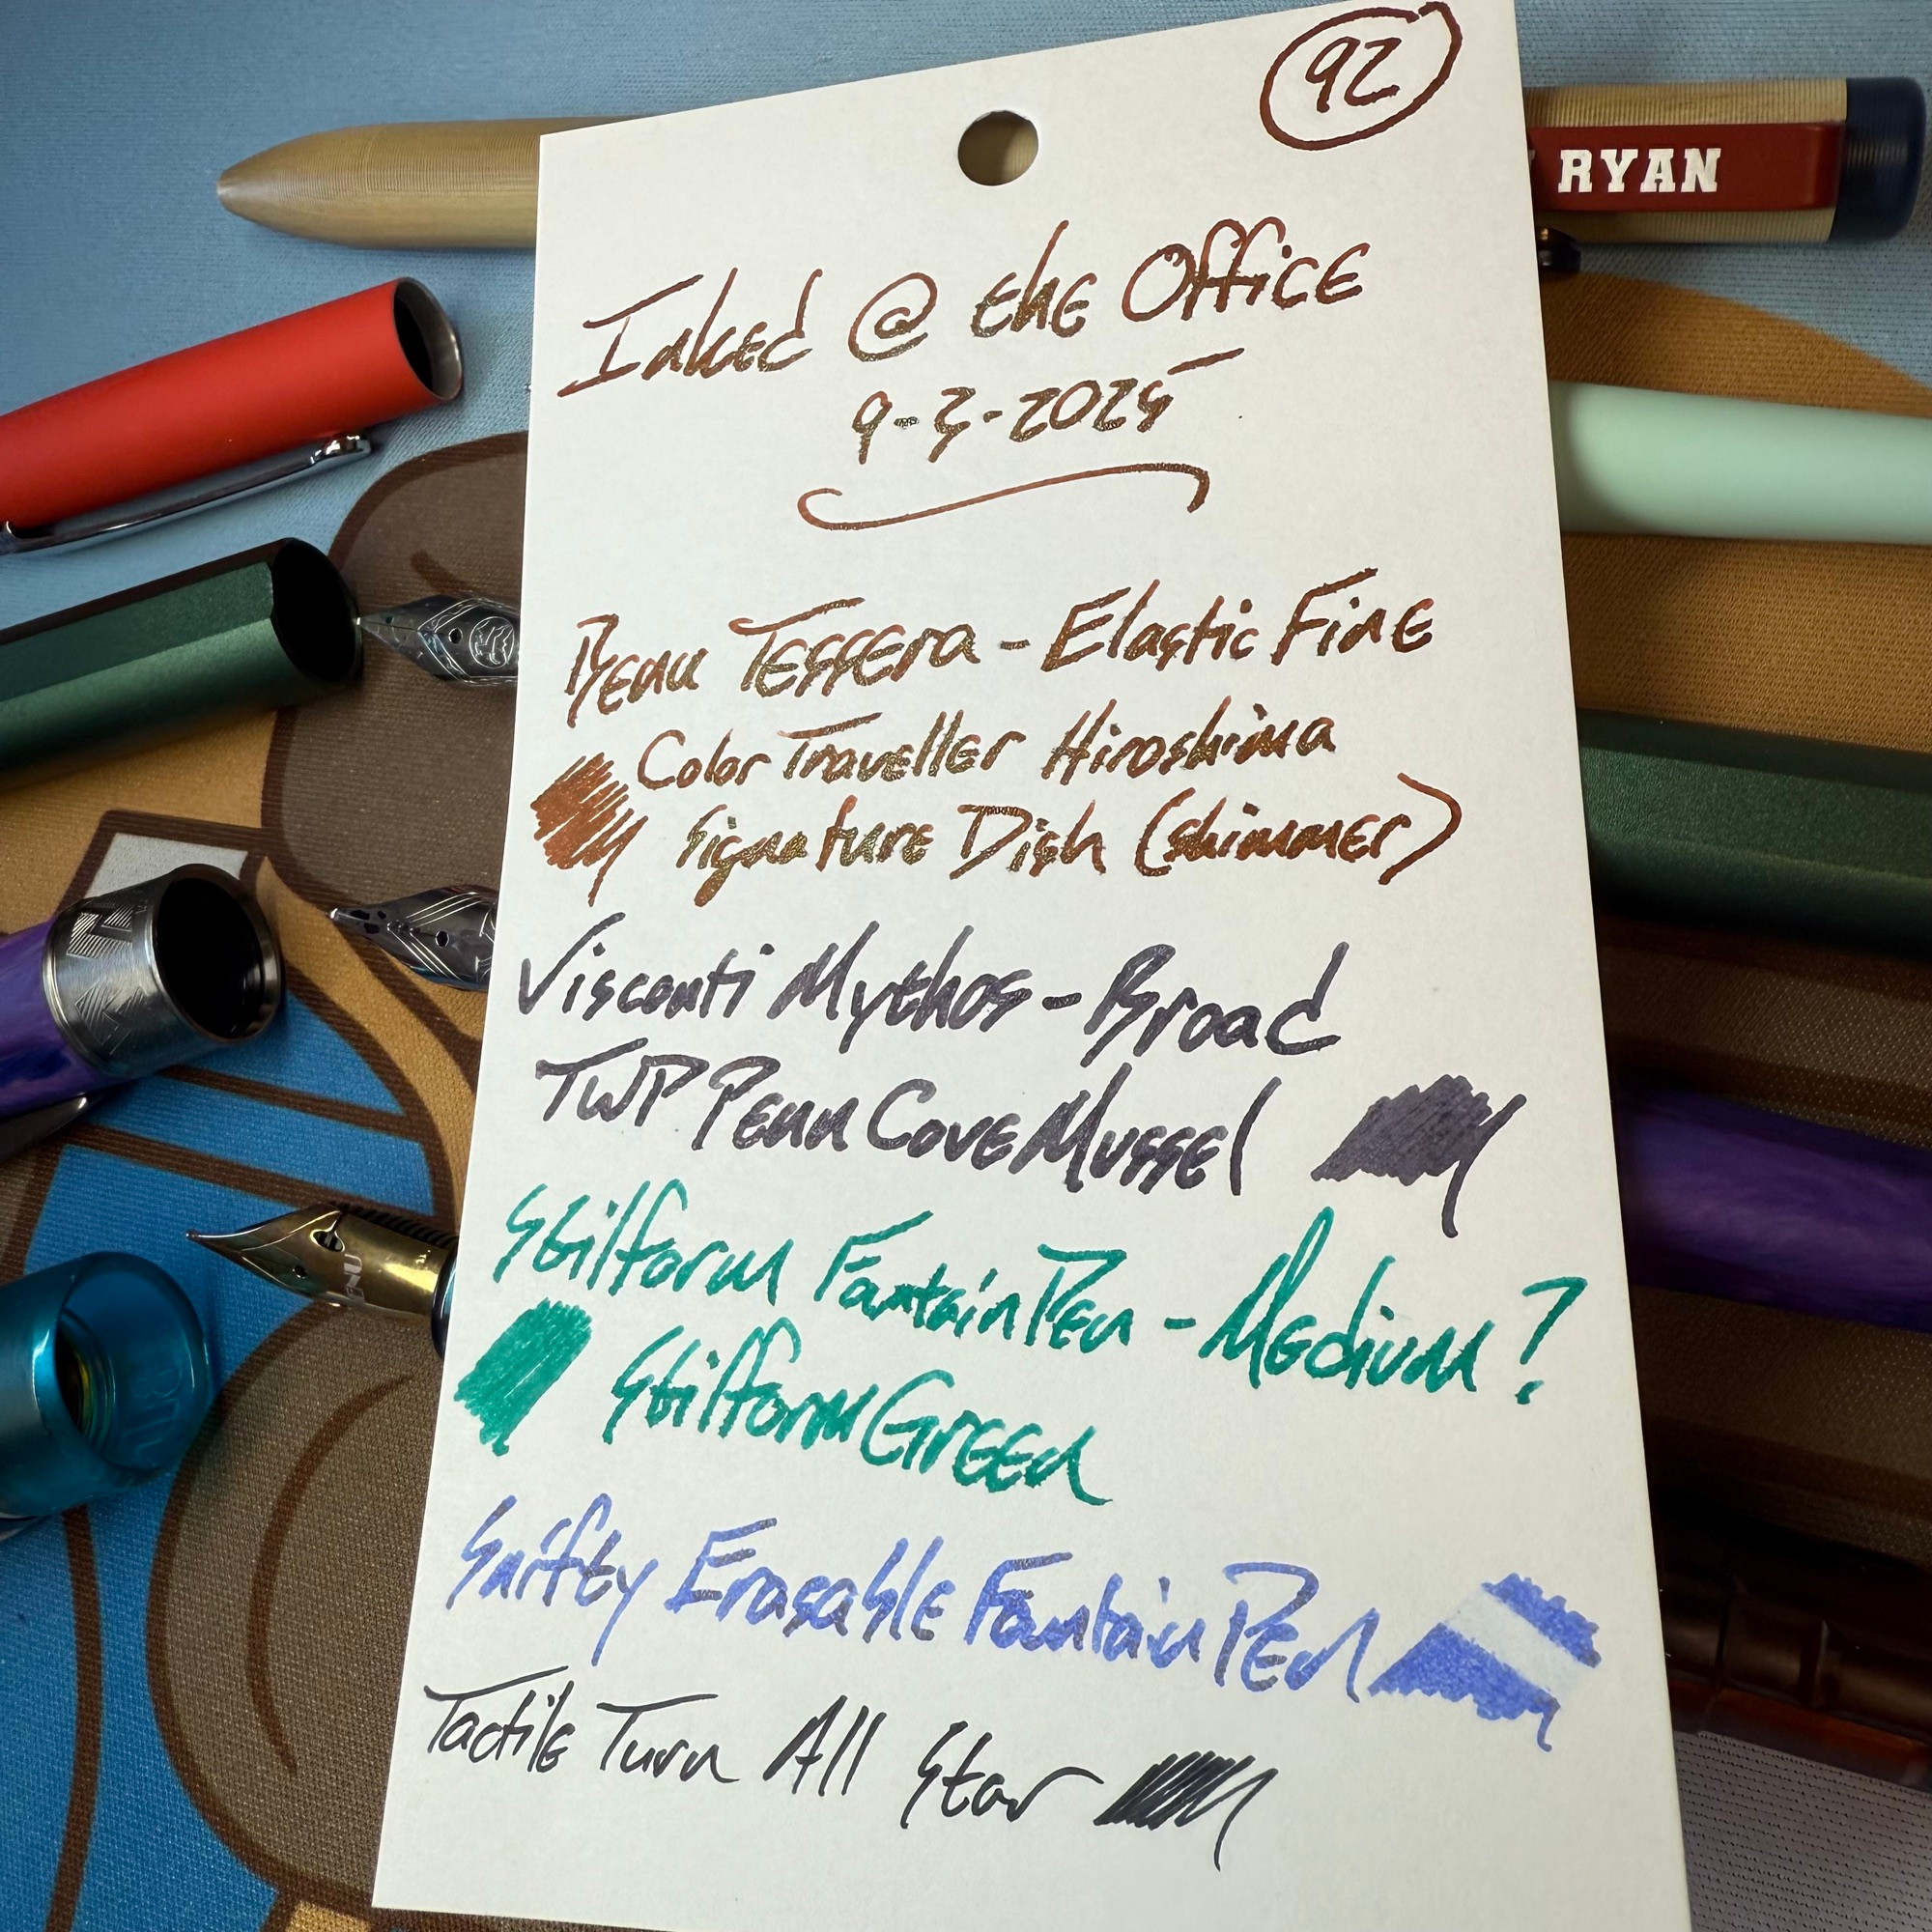 92
RYAN
Inked @ the Office
9-3-2025
Benu Tessera - Elastic Fine
Color Traveller Hiroshima
Signature Dish (shimmer)
Visconti Mythos - Broad
TWP Penn Cove Mussel
Stilform Fountain Pen - Medium?
Stilform Green
Snifty Erasable Fountain Pen
Tactile Turn All Star
BENU